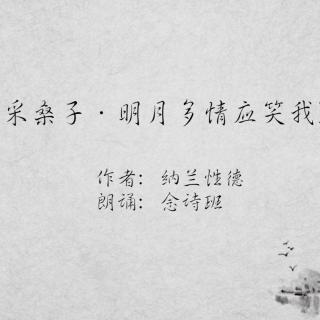 采桑子·明月多情应笑我
作者: 纳兰性德
朗诵: 念诗班